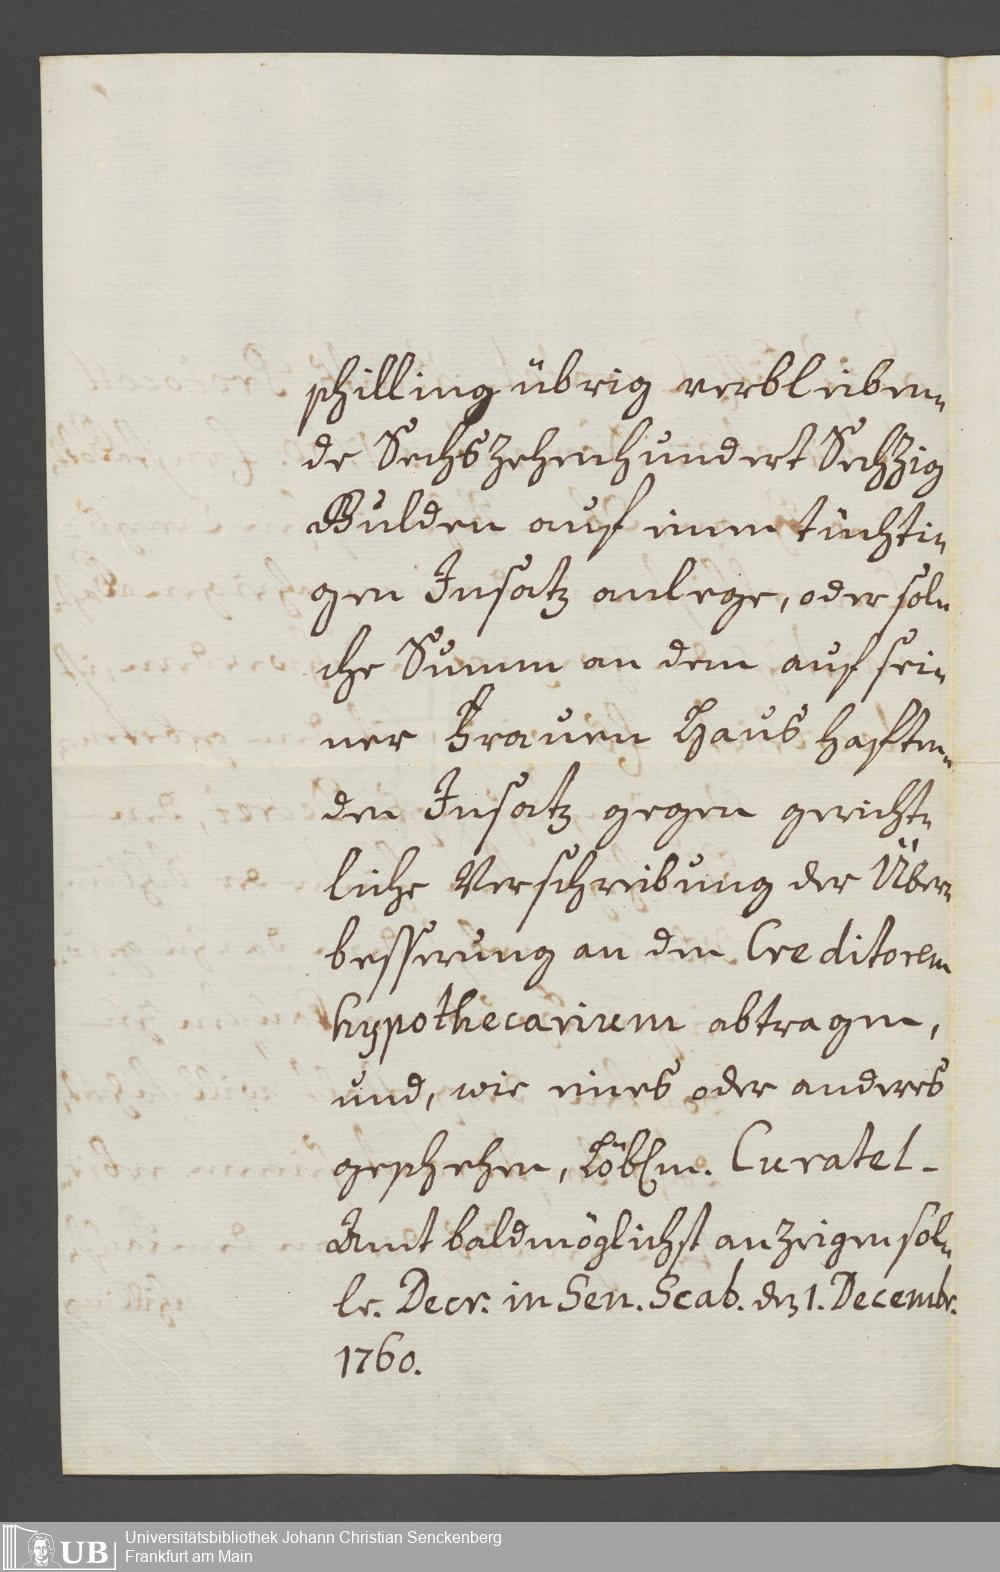 schilling übrig verbleiben-
de Sechszehenhundert Sechzig
Gulden auf einen tüchti-
gen Insatz anlege, oder sol-
che Summ an dem auf sei-
ner Frauen Haus haften-
den Insatz gegen gericht-
liche Verschreibung der Über-
besserung an den Creditorem
hypothecarium abtragen,
und, wie eines oder anderes
geschehen, Löbln. Curatel-
Amt baldmöglichst anzeigen sol-
le. Decr. in Sen. Scab. den 1. Decembr.
1760.
UB
Universitätsbibliothek Johann Christian Senckenberg
Frankfurt am Main